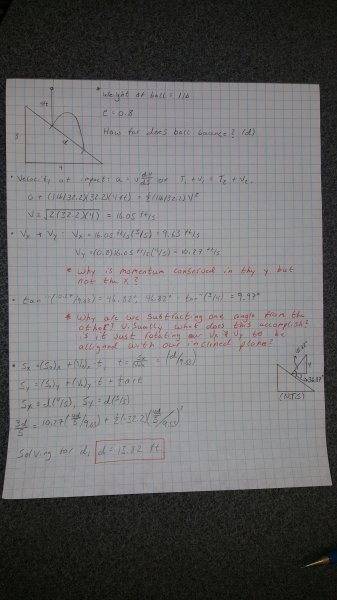 Weight of ball = 1 lb
4ft
e = 0.8
How far does ball bounce? (d)
3
4
• Velocity at impact: a = v dv/ds or T₁ + V₁ = T₂ + V₂
0 + (1/32.2)(32.2)(4ft) = ½(1/32.2) V²
V = √2(32.2)(4) = 16.05 ft/s
Vx = 16.05 ft/s (3/5) = 9.63 ft/s
Vy = (0.8)16.05 ft/s (4/5) = 10.27 ft/s
* Why is momentum conserved in the y but
not the x?
• tan⁻¹(10.27/9.63) = 46.82°, 46.82° - tan⁻¹(3/4) = 9.97°
* Why are we subtracting one angle from the
other? Visually what does this accomplish?
Is it just rotating our Vx & Vy to be
alligned with our inclined plane?
Sx = (So)x + (Vo)x t,
Sy = (So)y + (Vo)y t +
Sx = d(4/5), Sy = d(3/5)
36.87°
(NTS)
Solving for d, d = 13.82 ft